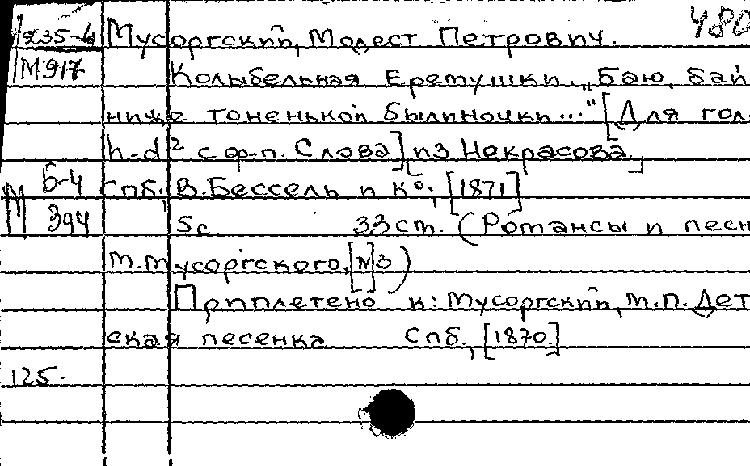 Z35-4 Мусоргский, Модест Петрович. 480
М917 Колыбельная Еремушки. "Баю, бай
ниже тоненькой былиночки..." [Для гол
h-d² с ф-п. Слова] [из Некрасова.]
Б-4 Спб., В. Бессель и К°, [1871]
М 394 5с. 33 см. (Романсы и песн
М. Мусоргского, [№ 3)
Приплетено к: Мусоргский, М. П. Дет
ская песенка Спб., [1870]
125.